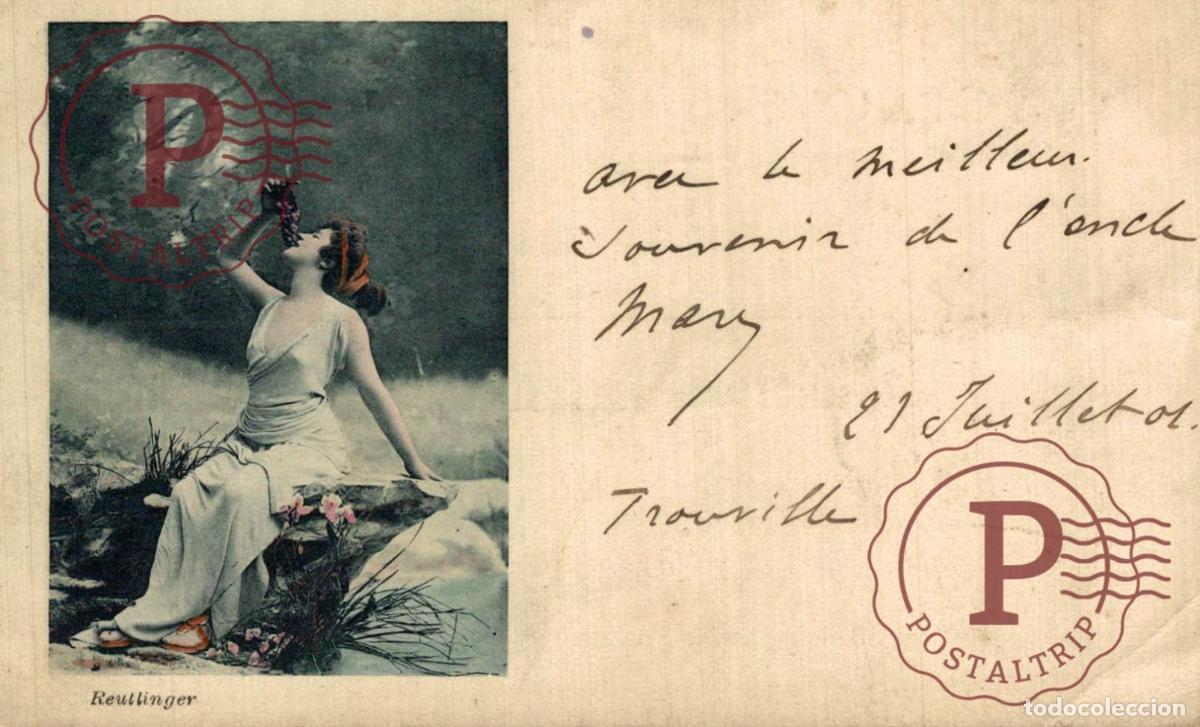 P
POSTALTRIP
avec le meilleur
souvenir de l'oncle
Mary
21 Juillet 01.
Trouville
P
POSTALTRIP
Reutlinger
todocoleccion